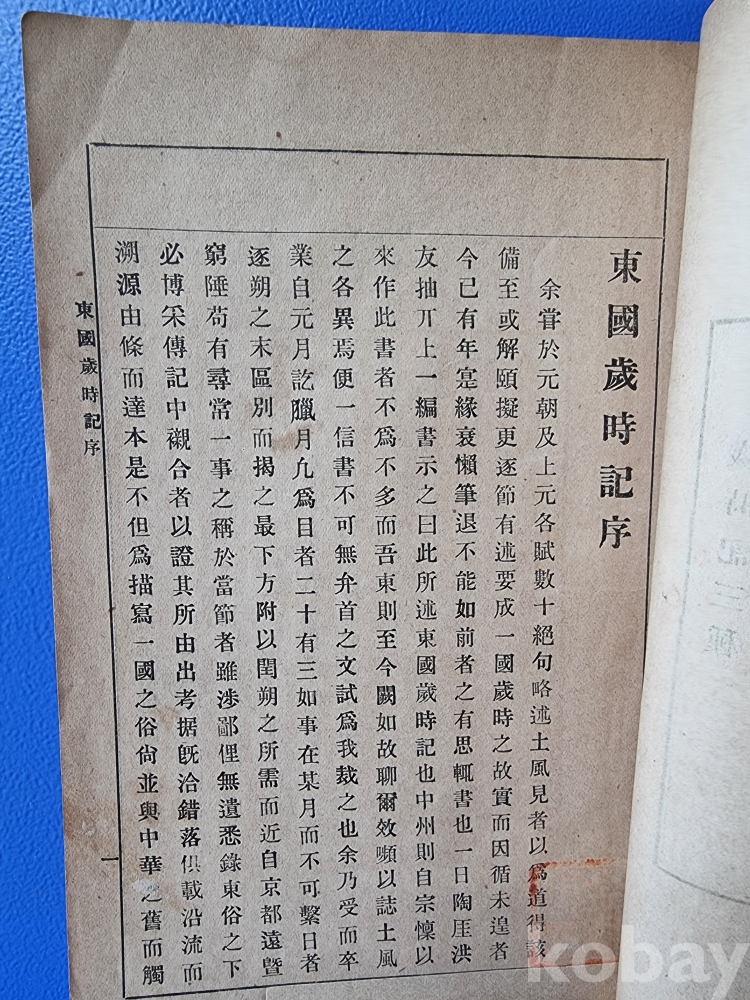 東國歲時記序
余嘗於元朝及上元各賦數十絕句略述土風見者以爲道得該
備至或解頤擬更逐節有述要成一國歲時之故實而因循未遑者
今已有年寔緣衰懶筆退不能如前者之有思輒書也一日陶厓洪
友抽丌上一編書示之曰此所述東國歲時記也中州則自宗懍以
來作此書者不爲不多而吾東則至今闕如故聊爾效嚬以誌土風
之各異焉便一信書不可無弁首之文試爲我裁之也余乃受而卒
業自元月訖臘月凡爲目者二十有三如事在某月而不可繫日者
逐朔之末區別而揭之最下方附以閏朔之所需而近自京都遠曁
窮陲苟有尋常一事之稱於當節者雖涉鄙俚無遺悉錄東俗之下
必博采傳記中襯合者以證其所由出考据旣洽錯落俱載沿流而
溯源由條而達本是不但爲描寫一國之俗尙並與中華之舊而觸
東國歲時記序
一
kobay